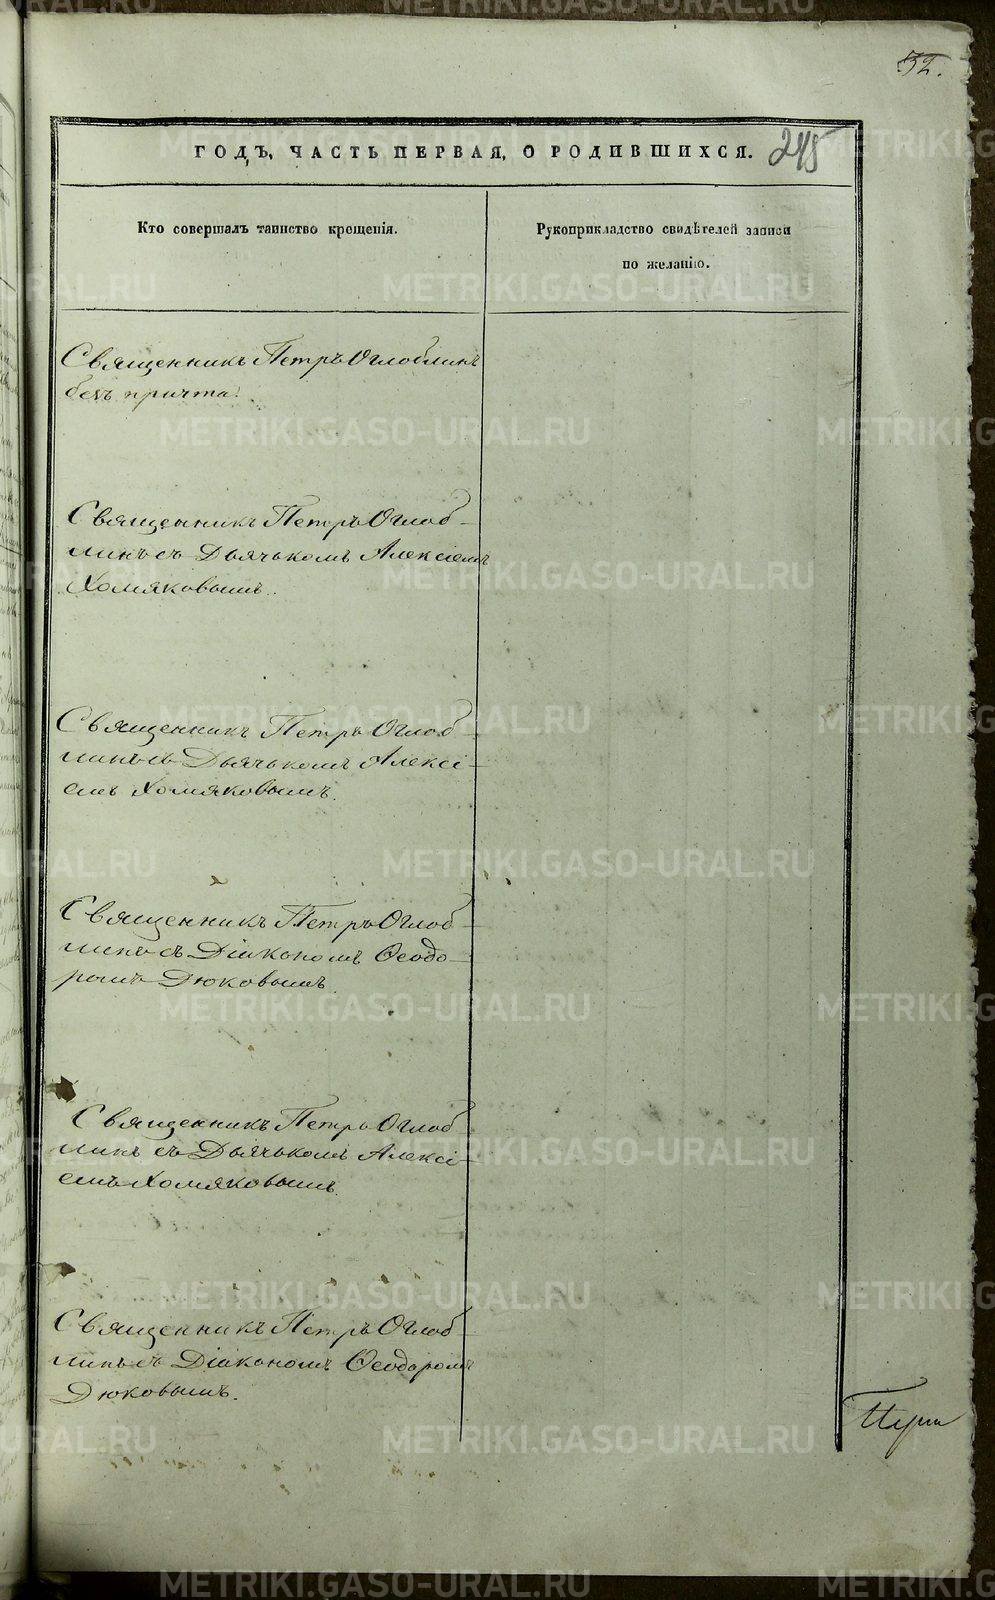 52.
ГОДЪ, ЧАСТЬ ПЕРВАЯ, О РОДИВШИХСЯ. 245
Кто совершалъ таинство крещенія.
Рукоприкладство свидѣтелей записи
по желанію.
Священникъ Петръ Оглоблинъ
безъ причта.
Священникъ Петръ Оглоб-
линъ съ Дьячькомъ Алексіемъ
Хомяковымъ.
Священникъ Петръ Оглоб-
линъ съ Дьячькомъ Алексі-
емъ Хомяковымъ.
Священникъ Петръ Оглоб-
линъ съ Діакономъ Ѳеодо-
ромъ Дюковымъ
Священникъ Петръ Оглоб-
линъ съ Дьячькомъ Алексі-
емъ Хомяковымъ.
Священникъ Петръ Оглоб-
линъ съ Діакономъ Ѳеодоромъ
Дюковымъ.
METRIKI.GASO-URAL.RU